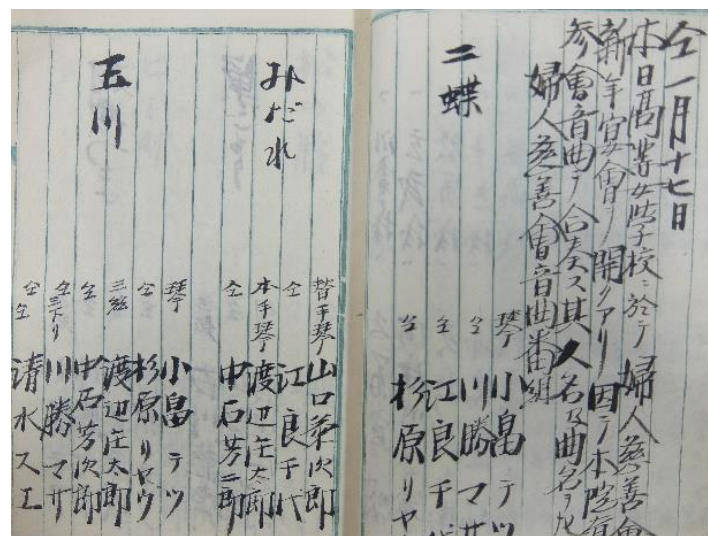 仝一月十七日
本日高等女学校ニ於テ婦人慈善會
新年宴會ヲ開クアリ因テ本院有
参會音曲ヲ合奏ス其人名及曲名ヲ
婦人慈善會音曲番組
二蝶
琴 小畠テツ
仝 川勝マサ
仝 江良千代
仝 杉原リヤウ
みだれ
替手琴 山口菊次郎
仝 江良千代
本手琴 渡辺庄太郎
仝 中石芳二郎
玉川
琴 小畠テツ
仝 杉原リヤウ
三絃 渡辺庄太郎
仝 中石芳次郎
仝三下り 川勝マサ
仝仝 清水スエ